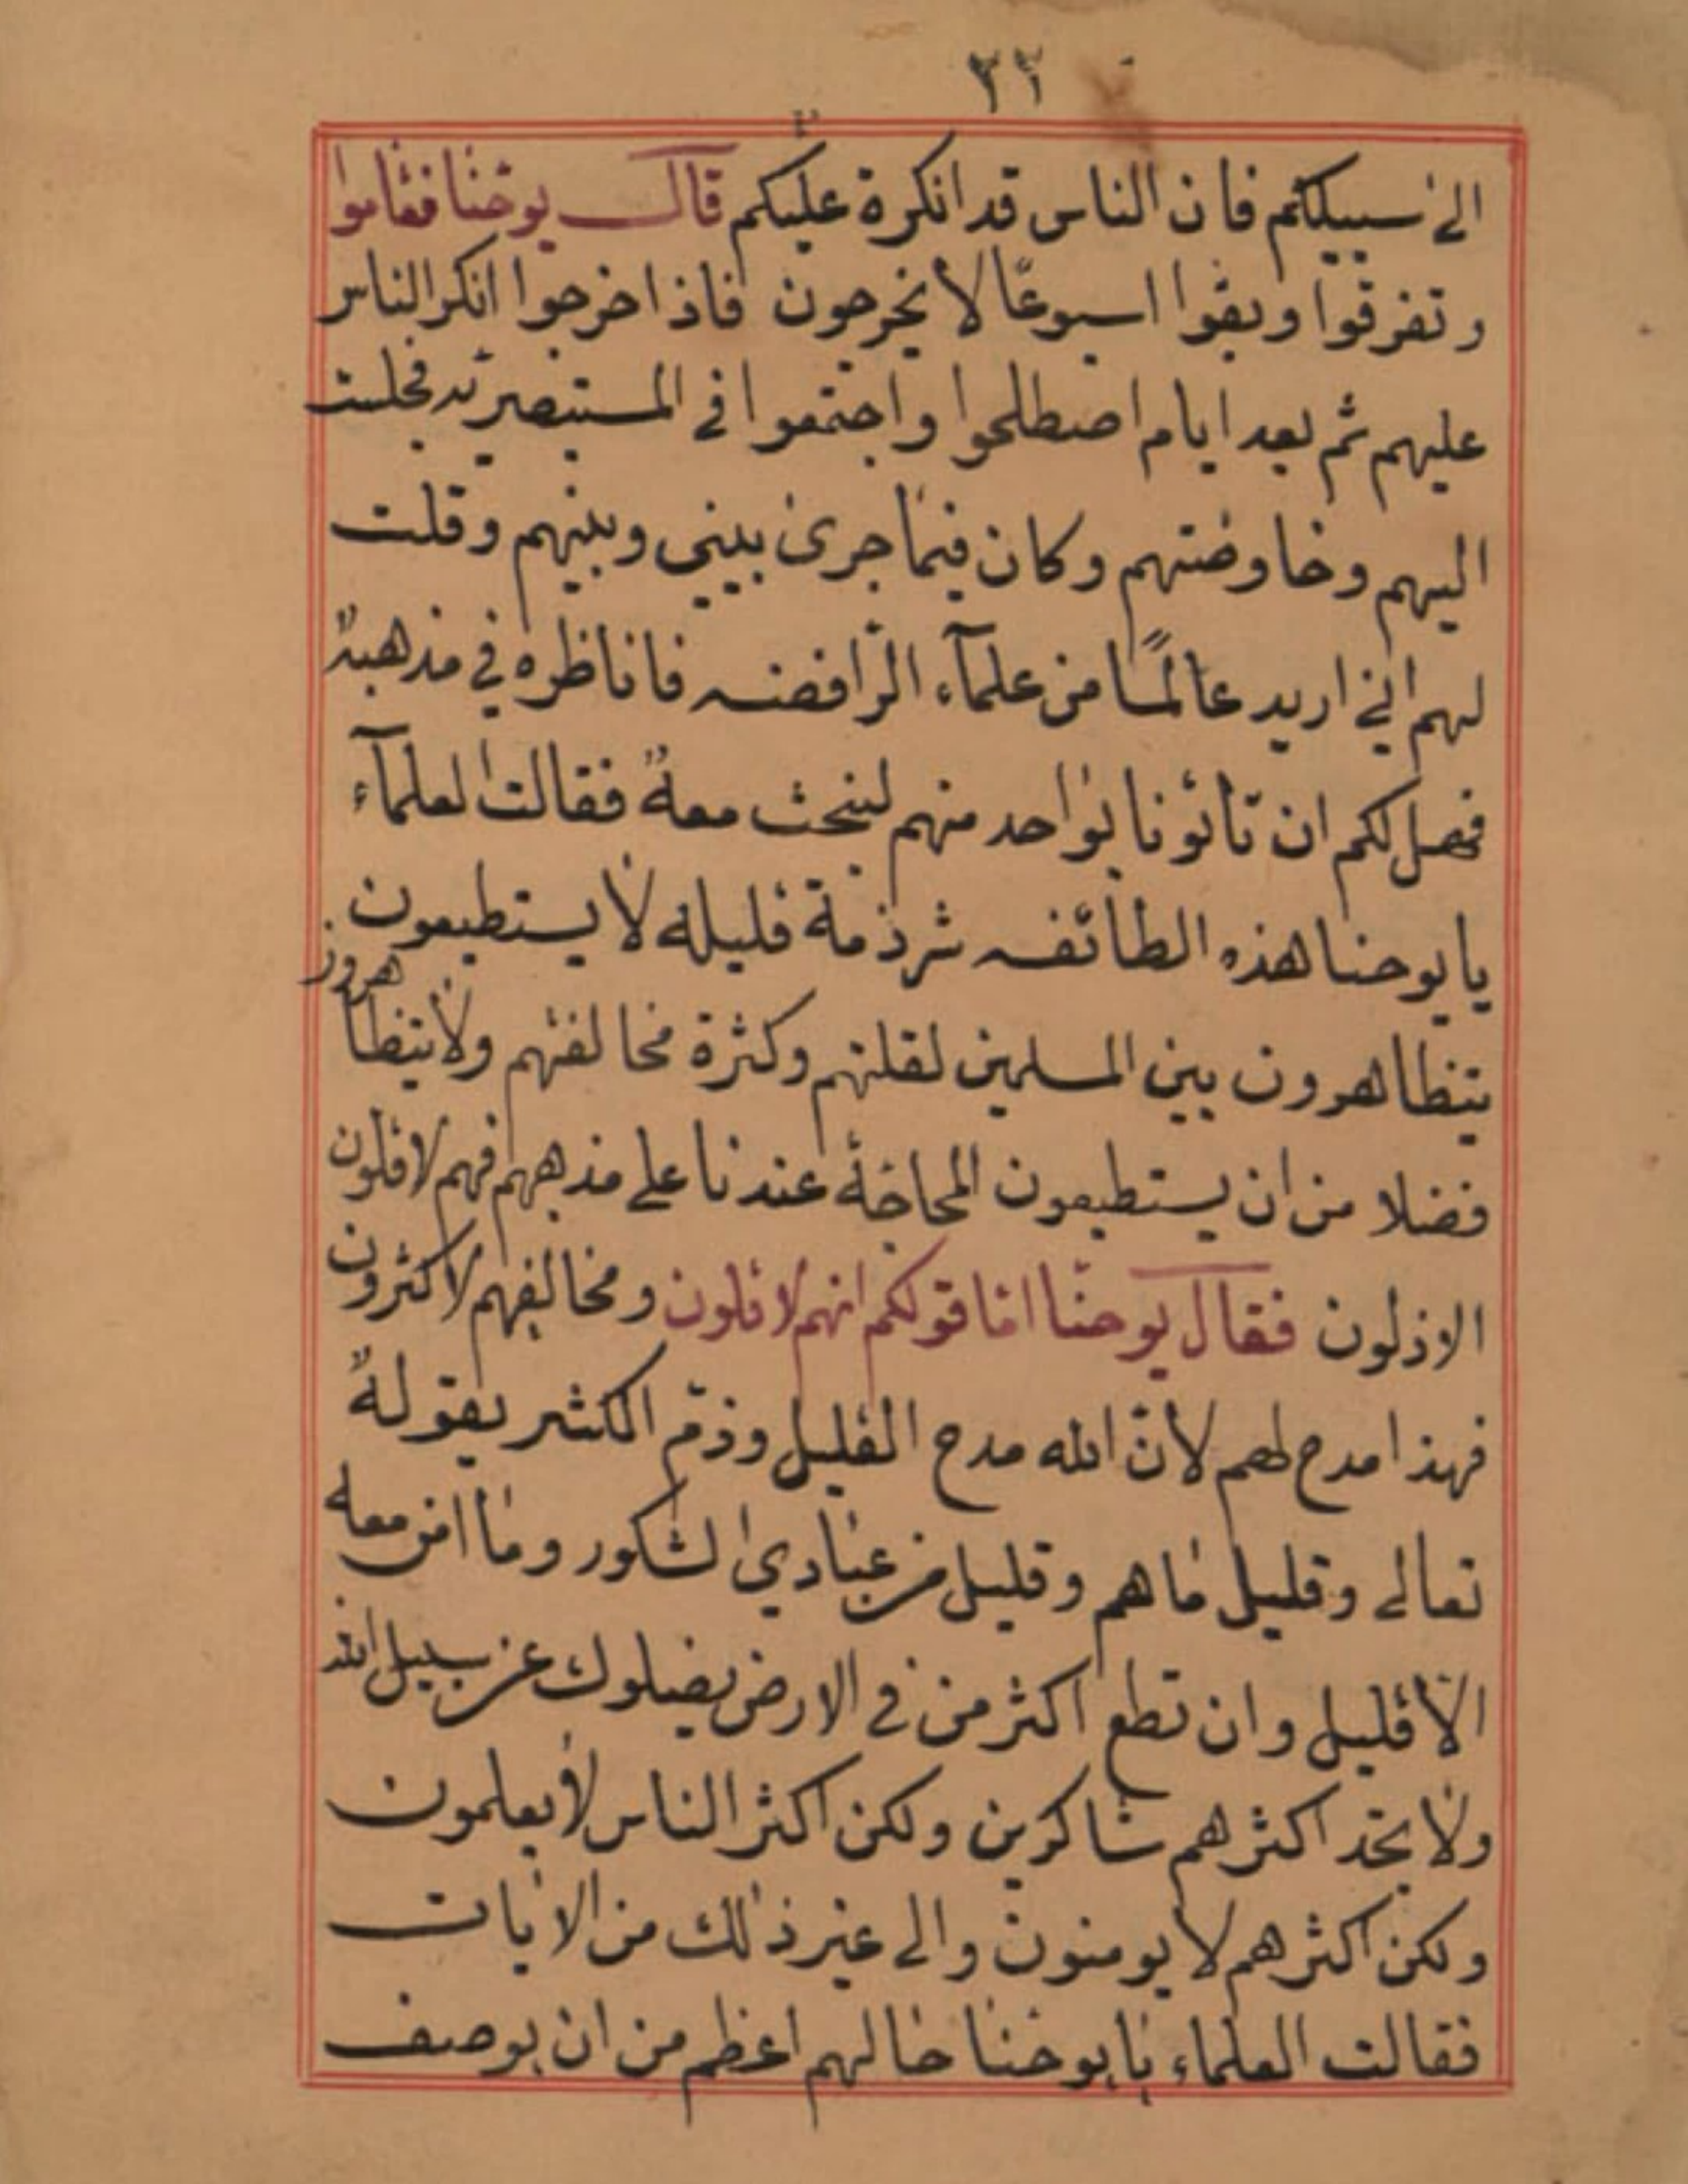 ٢٢
الى سبيلكم فان الناس قد انكرة عليكم قال يوحنا فقاموا
وتفرقوا وبقوا اسبوعًا لا يخرجون فاذا خرجوا انكر الناس
عليهم ثم بعد ايام اصطلحوا واجتمعوا في المستنصريه فجلست
اليهم وخاوضتهم وكان فيما جرى بيني وبينهم وقلت
لهم اني اريد عالمًا من علمآء الرّافضه فاناظره في مذهبه
فهل لكم ان تاتونا بواحد منهم لنبحث معه فقالت العلمآء
يا يوحنا هذه الطائفه شرذمة قليله لا يستطيعون
يتظاهرون بين المسلمين لقلتهم وكثرة مخالفتهم ولا يتظاهرون
فضلا من ان يستطيعون المحاجة عندنا على مذهبهم فهم لاقلون
الاذلون فقال يوحنّا امّا قولكم انهم لاقلون ومخالفهم لاكثرون
فهذا مدح لهم لانّ الله مدح القليل وذمّ الكثير بقوله
تعالى وقليل ما هم وقليل من عبادي الشكور وما امن معه
الا قليل وان تطع اكثر من في الارض يضلوك عن سبيل الله
ولا تجد اكثرهم شاكرين ولكن اكثر الناس لا يعلمون
ولكن اكثرهم لا يومنون والى غير ذلك من الايات
فقالت العلماء يا يوحنا حالهم اعظم من ان يوصف